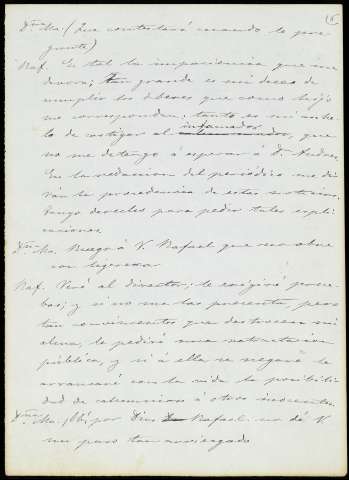 6
Dña Ma. (Que contestará cuando le pre-
gunte)
Raf. Es tal la impaciencia que me
devora; tan grande es mi deseo de
cumplir los deberes que como hijo
me corresponden; tanto es mi anhe-
lo de castigar al infamador, que
no me detengo á esperar á D. Andres.
En la redaccion del periódico me di-
rán la procedencia de estas noticias.
Tengo derecho para pedir tales espli-
caciones.
Dña Ma. Ruego á V. Rafael que no obre
con ligereza
Raf. Veré al director; le exigiré prue-
bas; y si no me las presenta, pero
tan convincentes que destrocen mi
alma, le pediré una retractacion
pública, y si á ella se negare le
arrancaré con la vida la posibili-
dad de calumniar á otros inocentes.
Dña Ma. ¡Oh! por Dios Rafael no dé V.
un paso tan arriesgado